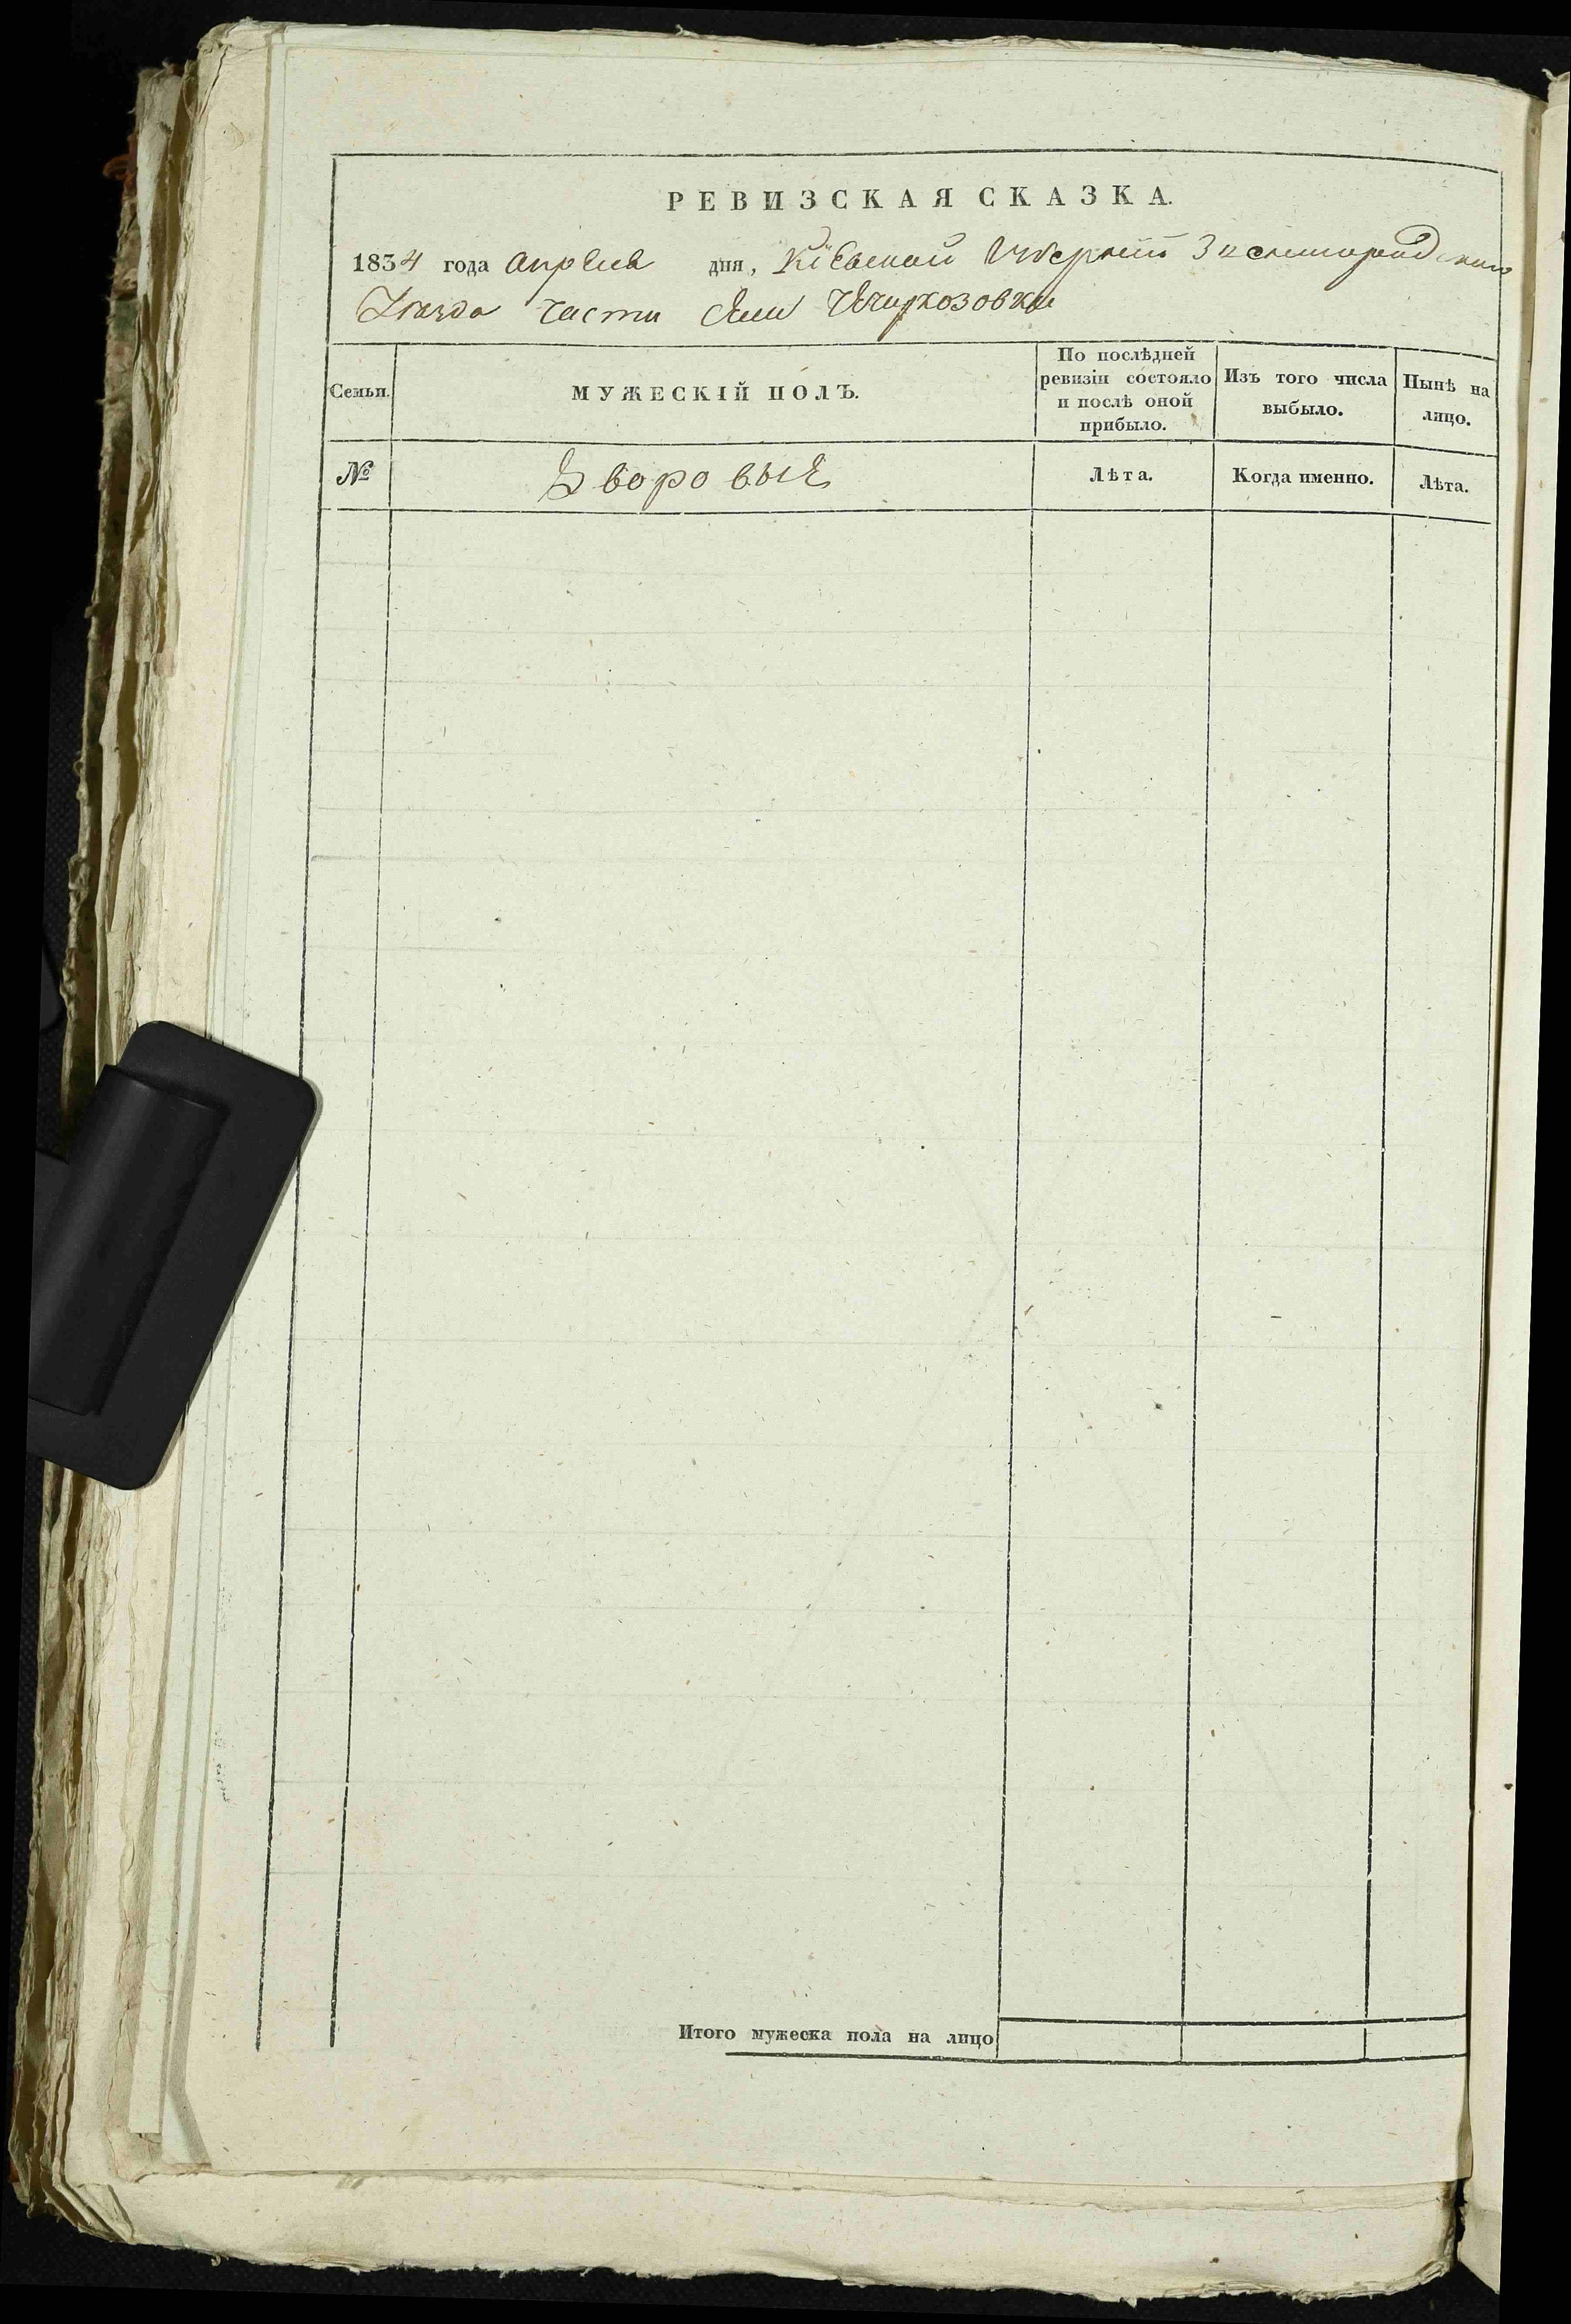 РЕВИЗСКАЯ СКАЗКА.
1834 года Апреля дня, Кіевской Губерніи Звенигородскаго
Уезда части Села Чичиркозовки
Семьи. МУЖЕСКІЙ ПОЛЪ. По послѣдней ревизіи состояло и послѣ оной прибыло. Изъ того числа выбыло. Нынѣ на лицо.
№ Дворовые Лѣта. Когда именно. Лѣта.
Итого мужеска пола на лицо